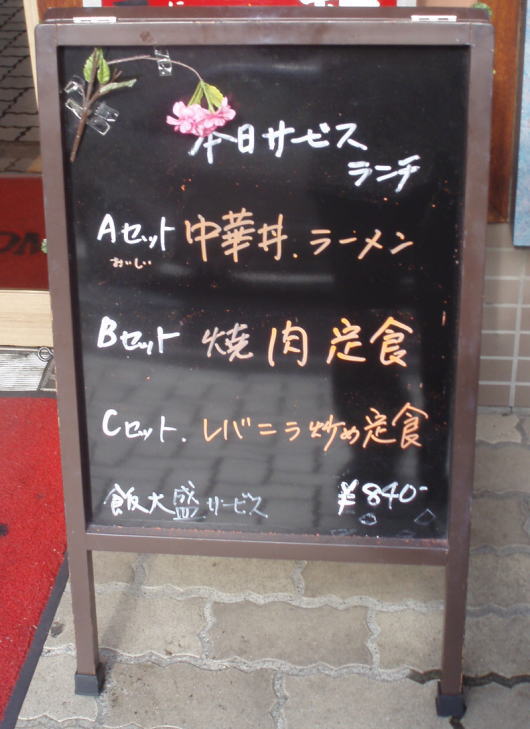 本日サービス
ランチ
Aセット 中華丼.ラーメン
おいしい
Bセット 焼肉定食
Cセット. レバニラ炒め定食
飯大盛サービス ¥840-